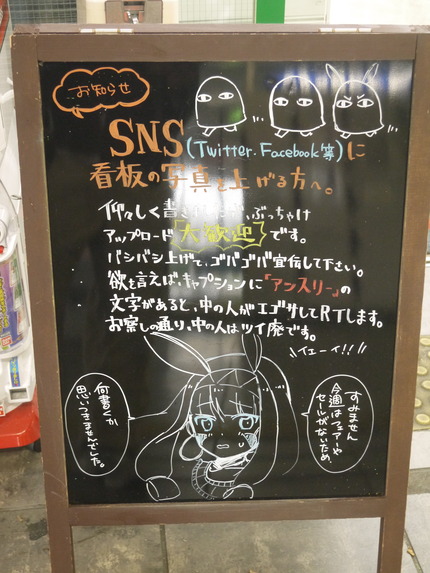 お知らせ
SNS(Twitter.Facebook等)に
看板の写真を上げる方へ。
仰々しく書きましたが、ぶっちゃけ
アップロード大歓迎です。
バシバシ上げて、ゴバゴバ宣伝して下さい。
欲を言えば、キャプションに「アンスリー」の
文字があると、中の人がエゴサしてRTします。
お察しの通り、中の人はツイ廃です。
イェーイ!!
すみません
今週はフェアーや
セールがないため、
何書くか
思いつきませんでした。